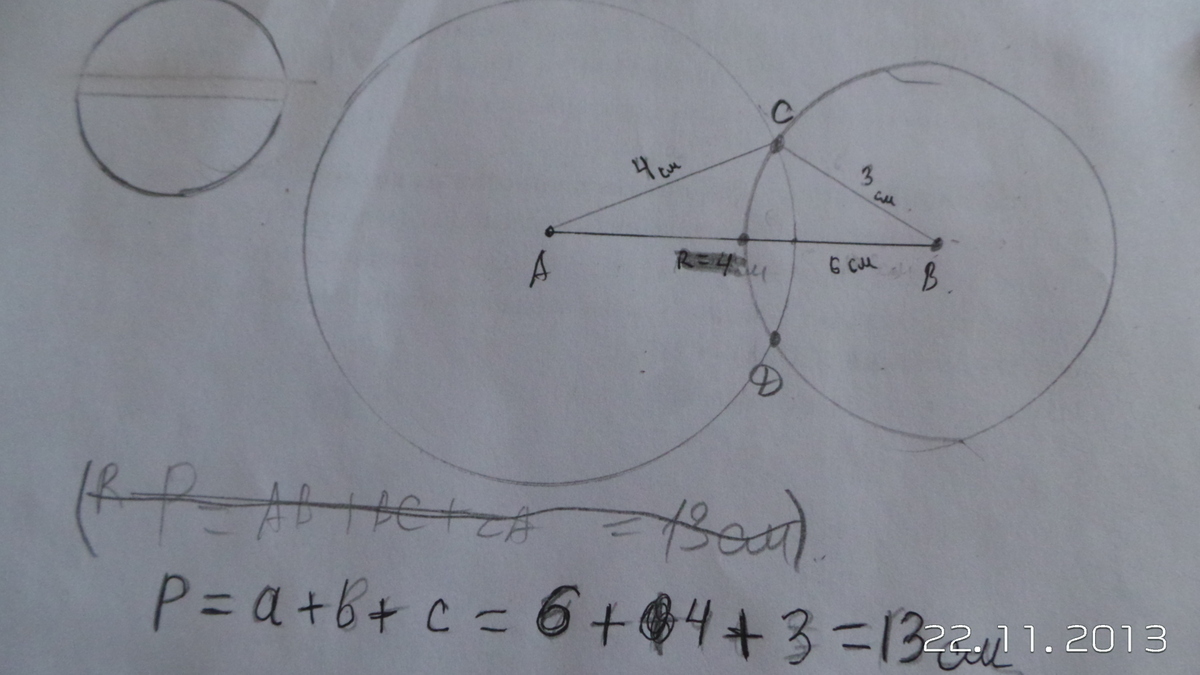 C
4 см
3 см
A
R=4 см
6 см
B
D
(R P = AB + BC + CA = 13 см).
P = a + b + c = 6 + 4 + 3 = 13 см
22.11.2013